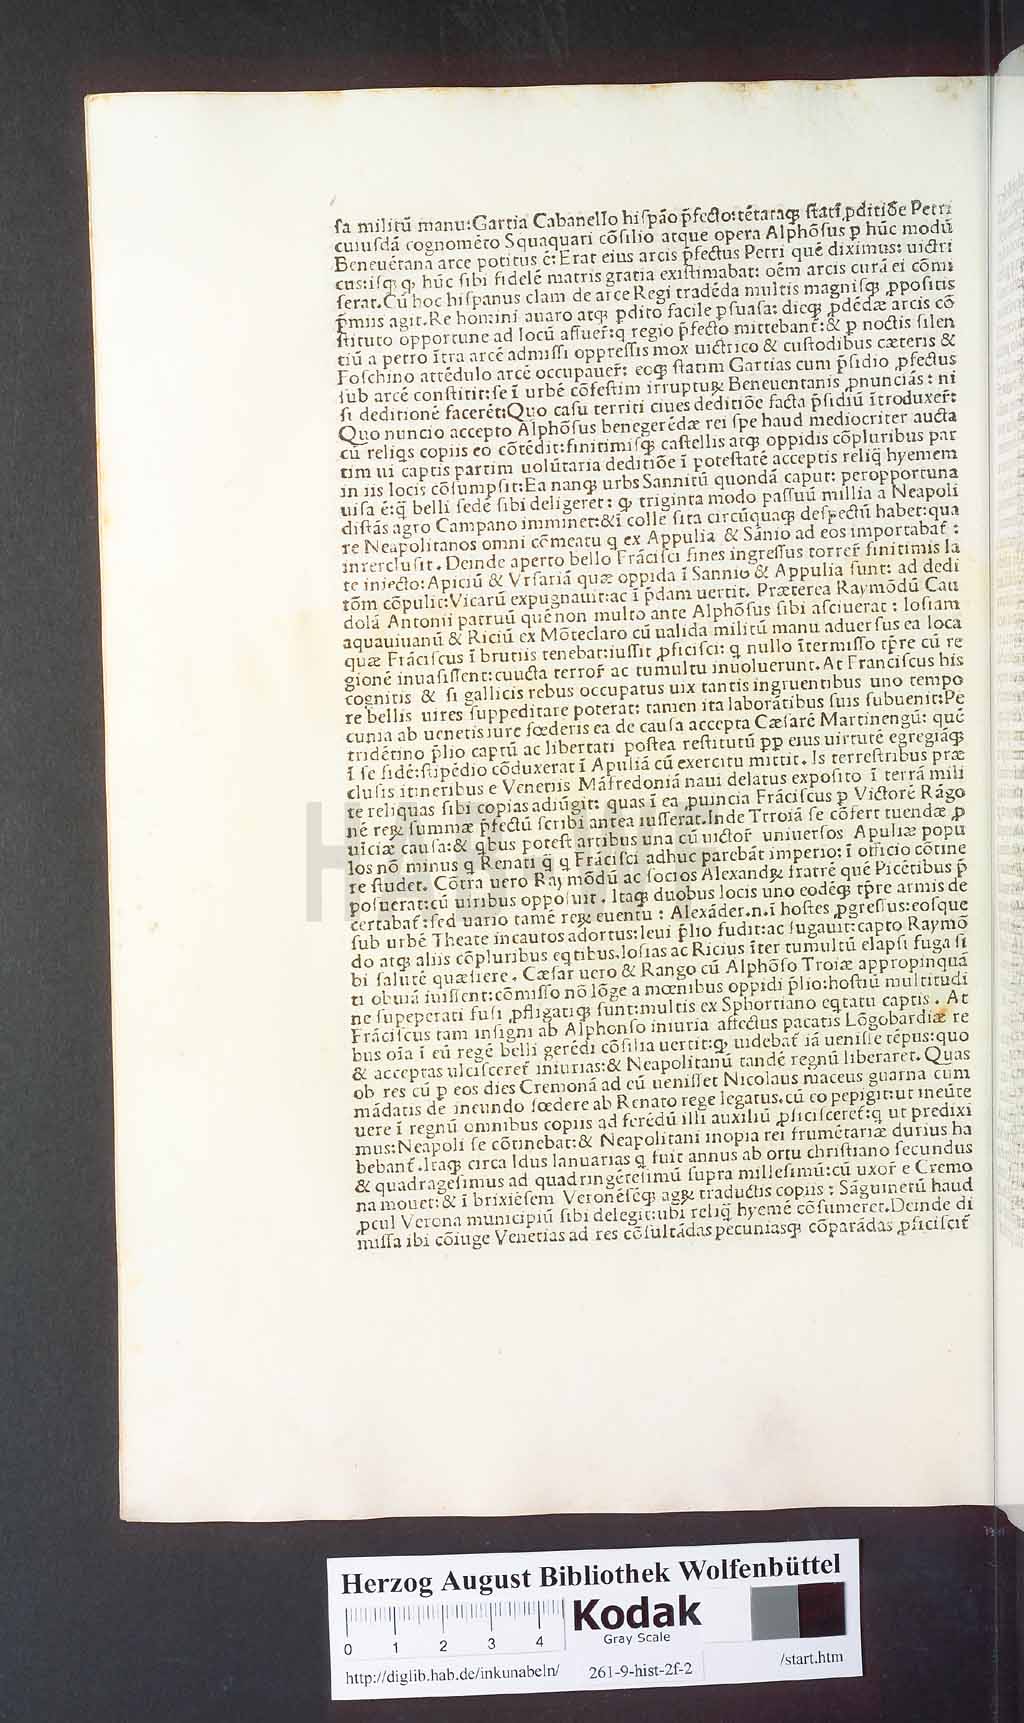 ſa militū manu: Gartia Cabanello hiſpāo p̄fecto: tētataqꝫ ſtatī ꝓditiōe Petri
cuiuſdā cognomēto Squaquari cōſilio atque opera Alphōſus ꝑ hūc modū
Beneuētana arce potitus ē: Erat eius arcis p̄fectus Petri quē diximus: uictri
cus: iſqꝫ ꝙ hūc ſibi fidelē matris gratia exiſtimabat: oēm arcis curā ei cōmi
ſerat. Cū hoc hiſpanus clam de arce Regi tradēda multis magniſqꝫ ꝓpoſitis
p̄miis agit. Re homini auaro atqꝫ ꝓdito facile ꝑſuaſa: dieqꝫ ꝓdēdæ arcis cō
ſtituto opportune ad locū affuer̄: q̄ regio p̄fecto mittebant̄: & ꝑ noctis ſilen
tiū a petro ītra arcē admiſſi oppreſſis mox uictrico & cuſtodibus cæteris &
Foſchino attēdulo arcē occupauer̄: ecqꝫ ſtatim Gartias cum p̄ſidio ꝓfectus
ſub arcē conſtitit: ſe ī urbē cōfeſtim irrupturꝝ Beneuentanis ꝓnunciās: ni
ſi deditionē facerēt: Quo caſu territi ciues deditiōe facta p̄ſidiū ītroduxer̄:
Quo nuncio accepto Alphōſus benegerēdæ rei ſpe haud mediocriter aucta
cū reliqs copiis eo cōtēdit: finitimiſqꝫ caſtellis atqꝫ oppidis cōpluribus par
tim ui captis partim uolūtaria deditiōe ī poteſtatē acceptis reliq̄ hyemem
in iis locis cōſumpſit: Ea nanqꝫ urbs Sannitū quondā caput: peropportuna
uiſa ē: q̄ belli ſedē ſibi deligeret: ꝙ triginta modo paſſuū millia a Neapoli
diſtās agro Campano imminet: & ī colle ſita circūquaqꝫ deſpectū habet: qua
re Neapolitanos omni cōmeatu q̄ ex Appulia & Sānio ad eos importabat̄:
intercluſit. Deinde aperto bello Frāciſci fines ingreſſus torrer̄ finitimis la
te iniecto: Apiciū & Vrſariā quæ oppida ī Sannio & Appulia ſunt: ad dedi
tōm cōpulit: Vicarū expugnauit: ac ī p̄dam uertit. Præterea Raymōdū Cau
dolā Antonii patruū quē non multo ante Alphōſus ſibi aſciuerat: Ioſiam
aquauiuanū & Riciū ex Mōteclaro cū ualida militū manu aduerſus ea loca
quæ Frāciſcus ī brutiis tenebat: iuſſit ꝓficiſci: q̄ nullo ītermiſſo tp̄re cū re
gionē inuaſiſſent: cuucta terror̄ ac tumultu inuoluerunt. At Franciſcus his
cognitis & ſi gallicis rebus occupatus uix tantis ingruentibus uno tempo
re bellis uires ſuppeditare poterat: tamen ita laborātibus ſuis ſubuenit: Pe
cunia ab uenetis iure fœderis ea de cauſa accepta Cæſarē Martinengū: quē
tridētino p̄lio captū ac libertati poſtea reſtitutū ꝓp̄ eius uirtutē egregiāqꝫ
ī ſe fidē: ſtipēdio cōduxerat ī Apuliā cū exercitu mittit. Is terreſtribus præ
cluſis itineribus e Venetiis Māfredoniā naui delatus expoſito ī terrā mili
te reliquas ſibi copias adiūgit: quas ī ea ꝓuincia Frāciſcus ꝑ Victorē Rāgo
nē reꝝ ſummæ p̄fectū ſcribi antea iuſſerat. Inde Ttroiā ſe cōfert tuendæ ꝓ
uiciæ cauſa: & qbus poteſt artibus una cū uictor̄ uniuerſos Apuliæ popu
los nō minus q̄ Renati q̄ q̄ Frāciſci adhuc parebāt imperio: ī officio cōtine
re ſtudet. Cōtra uero Raymōdū ac ſocios Alexandꝝ fratrē quē Picētibus p̄
poſuerat: cū uiribus oppoſuit. Itaqꝫ duobus locis uno eodēqꝫ tp̄re armis de
certabat̄: ſed uario tamē reꝝ euentu: Alexāder. n. ī hoſtes ꝓgreſſus: eoſque
ſub urbē Theate incautos adortus: leui p̄lio fudit: ac fugauit: capto Raymō
do atqꝫ aliis cōpluribus eqtibus. Ioſias ac Ricius īter tumultū elapſi fuga ſi
bi ſalutē quæſiere. Cæſar uero & Rango cū Alphōſo Troiæ appropinquā
ti obuiā iuiſſent: cōmiſſo nō lōge a mœnibus oppidi p̄lio: hoſtiū multitudi
ne ſupeperati fuſi ꝓfligatiqꝫ ſunt: multis ex Sphortiano eqtatu captis. At
Frāciſcus tam inſigni ab Alphonſo iniuria affectus pacatis Lōgobardiæ re
bus oīa ī eū regē belli gerēdi cōſilia uertit: ꝙ uidebat̄ iā ueniſſe tēpus: quo
& acceptas ulciſceret̄ iniurias: & Neapolitanū tandē regnū liberaret. Quas
ob res cū ꝑ eos dies Cremonā ad eū ueniſſet Nicolaus maceus guarna cum
mādatis de ineundo fœdere ab Renato rege legatus. cū eo pepigit: ut ineūte
uere ī regnū omnibus copiis ad ferēdū illi auxiliū ꝓficiſceret̄: q̄ ut predixi
mus: Neapoli ſe cōtinebat: & Neapolitani inopia rei frumētariæ durius ha
bebant̄. Itaqꝫ circa Idus Ianuarias q̄ fuit annus ab ortu chriſtiano ſecundus
& quadrageſimus ad quadringēteſimū ſupra milleſimū: cū uxor̄ e Cremo
na mouet: & ī brixiēſem Veronēſēqꝫ agꝝ traductis copiis: Sāguinetū haud
ꝓcul Verona municipiū ſibi delegit: ubi reliq̄ hyemē cōſumeret. Deinde di
miſſa ibi cōiuge Venetias ad res cōſultādas pecuniasqꝫ cōparādas ꝓficiſcit̄
HAB
Herzog August Bibliothek Wolfenbüttel
0 1 2 3 4
Kodak
Gray Scale
http://diglib.hab.de/inkunabeln/ 261-9-hist-2f-2 /start.htm